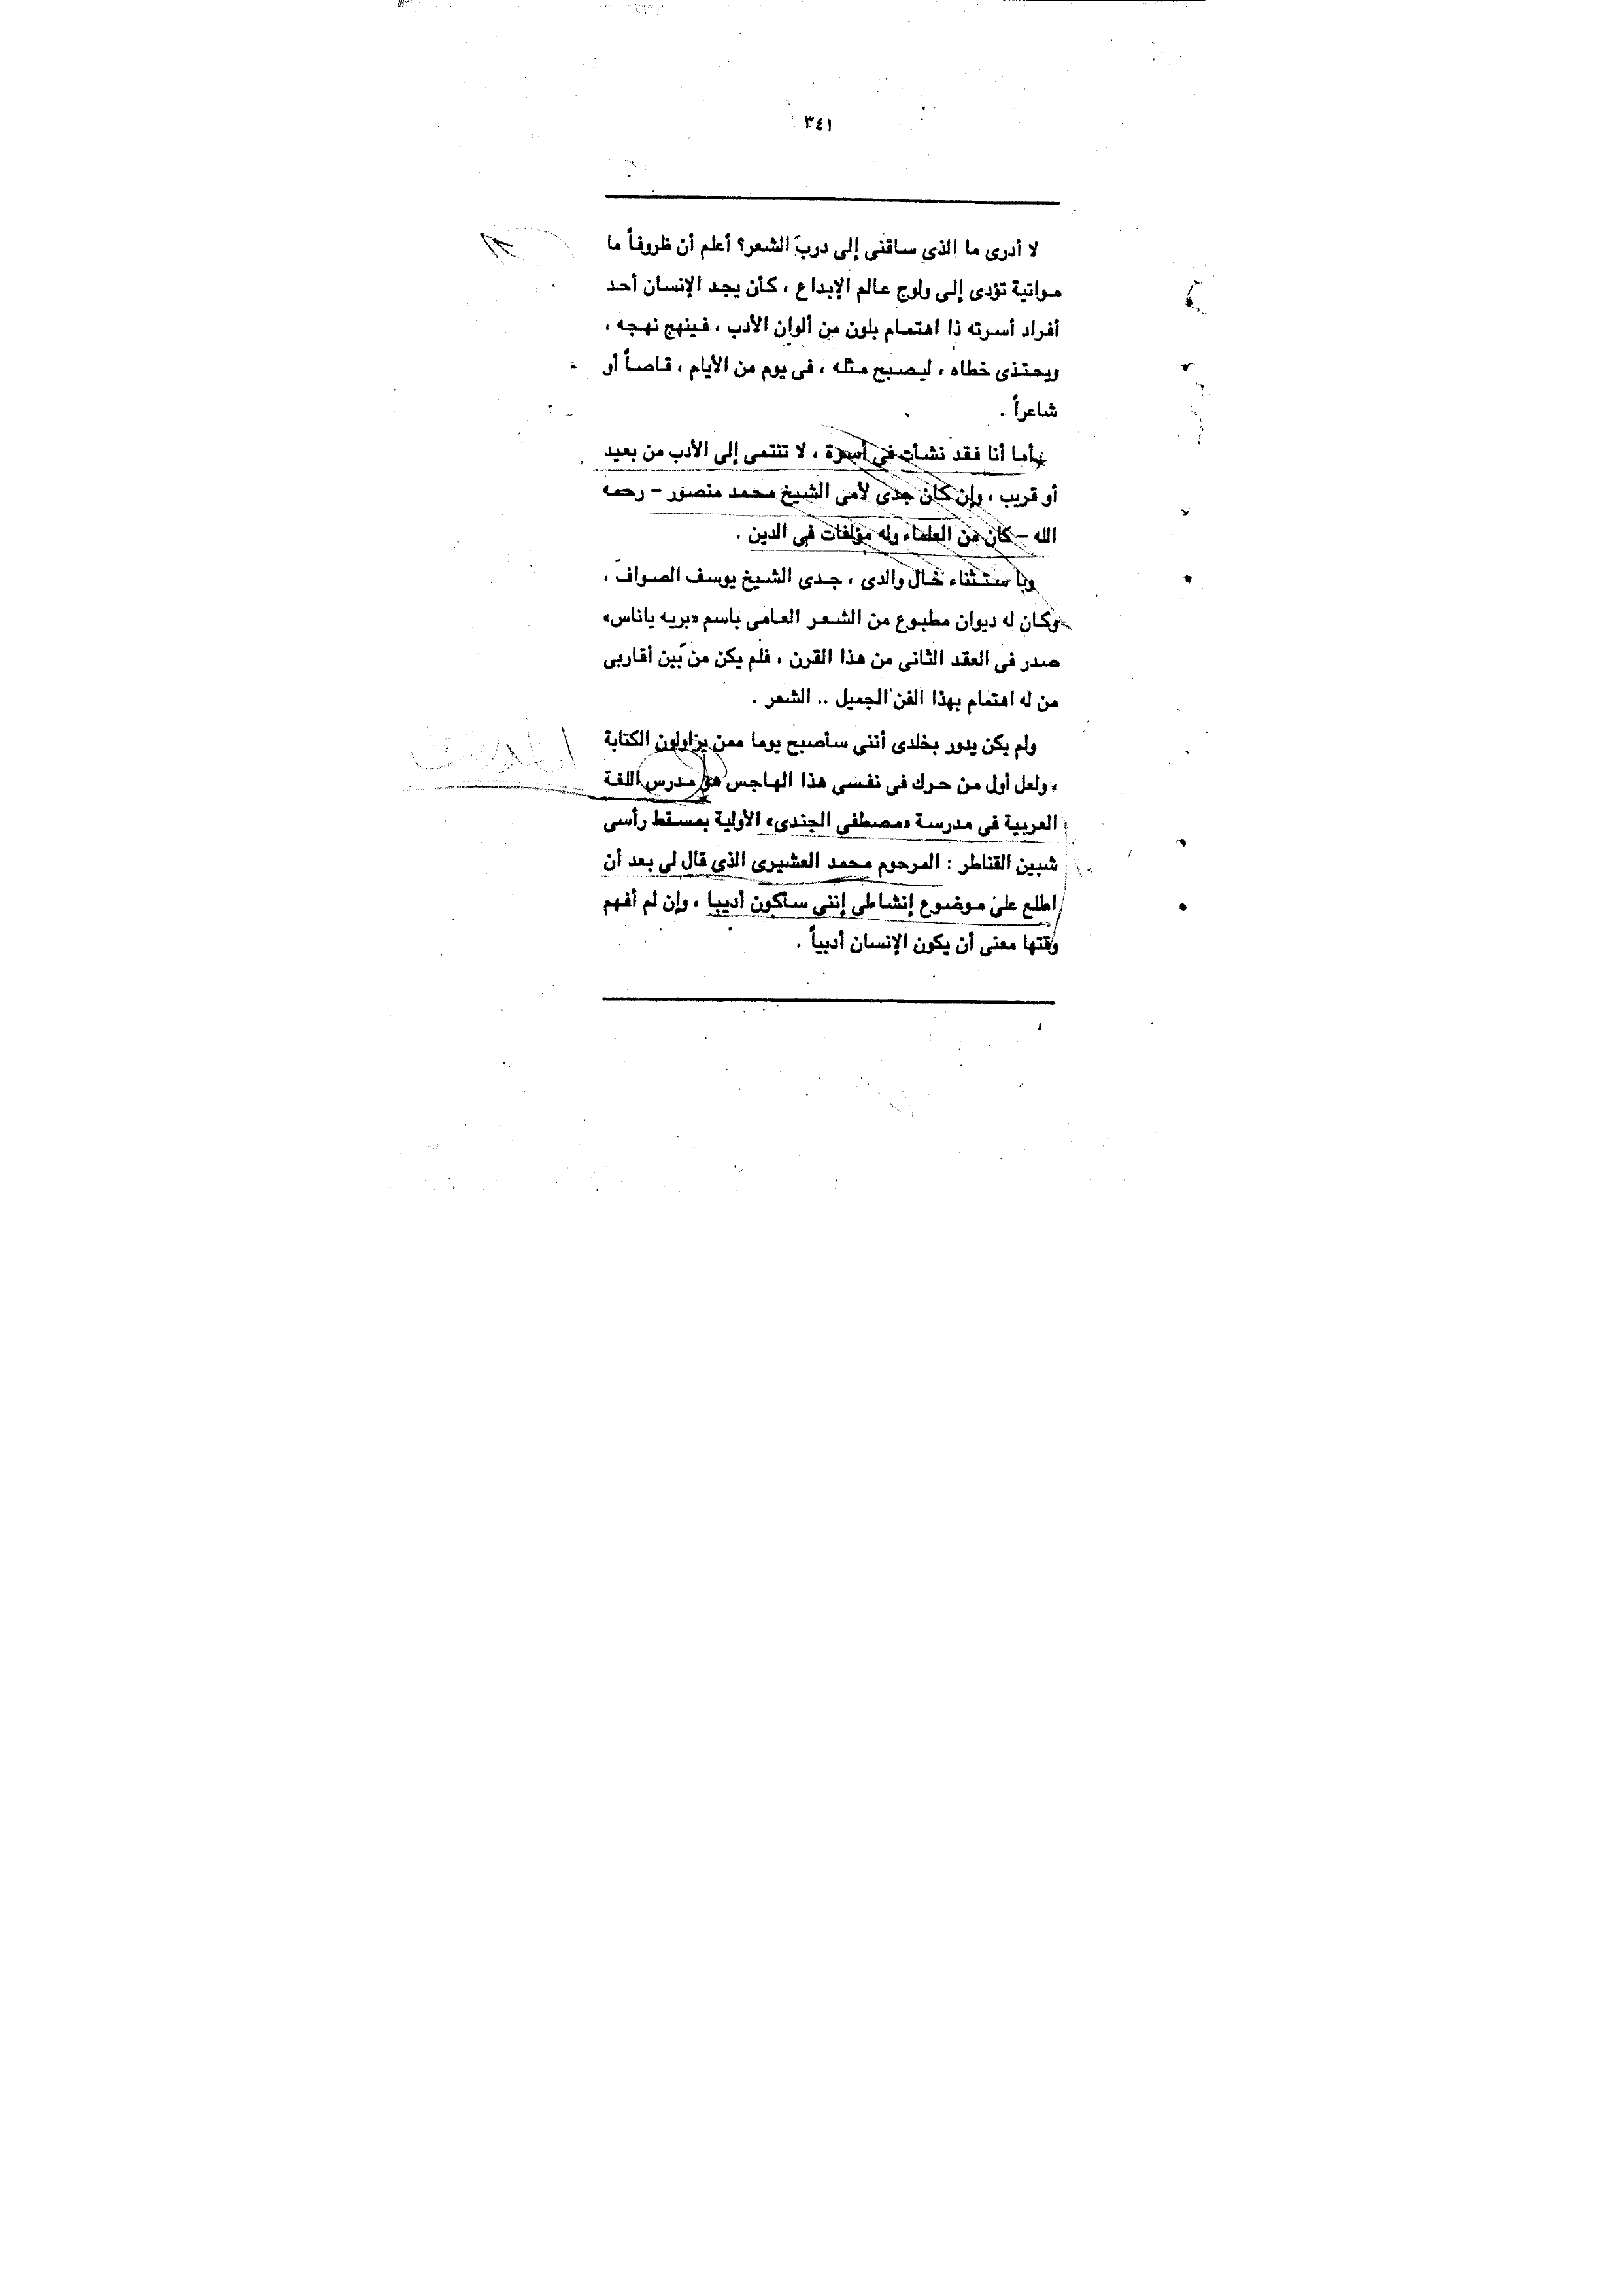 ٣٤١
لا أدرى ما الذى ساقنى إلى درب الشعر؟ أعلم أن ظروفاً ما
مواتية تؤدى إلى ولوج عالم الإبداع ، كأن يجد الإنسان أحد
أفراد أسرته ذا اهتمام بلون من ألوان الأدب ، فينهج نهجه ،
ويحتذى خطاه ، ليصبح مثله ، فى يوم من الأيام ، قاصاً أو
شاعراً .
وأما أنا فقد نشأت فى أسرة ، لا تنتمى إلى الأدب من بعيد
أو قريب ، وإن كان جدى لأمى الشيخ محمد منصور – رحمه
الله – كان من العلماء وله مؤلفات فى الدين .
وباستثناء خال والدى ، جدى الشيخ يوسف الصواف ،
وكان له ديوان مطبوع من الشعر العامى باسم «بريه ياناس»
صدر فى العقد الثانى من هذا القرن ، فلم يكن من بين أقاربى
من له اهتمام بهذا الفن الجميل .. الشعر .
ولم يكن يدور بخلدى أننى سأصبح يوما ممن يزاولون الكتابة
، ولعل أول من حرك فى نفسى هذا الهاجس هو مدرس اللغة
العربية فى مدرسة «مصطفى الجندى» الأولية بمسقط رأسى
شبين القناطر : المرحوم محمد العشيرى الذى قال لى بعد أن
اطلع على موضوع إنشاطى إننى سأكون أديبا ، وإن لم أفهم
وقتها معنى أن يكون الإنسان أدبياً .